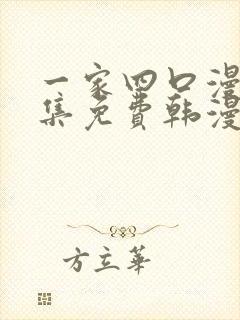 一家四口漫
集免费韩漫
方立华